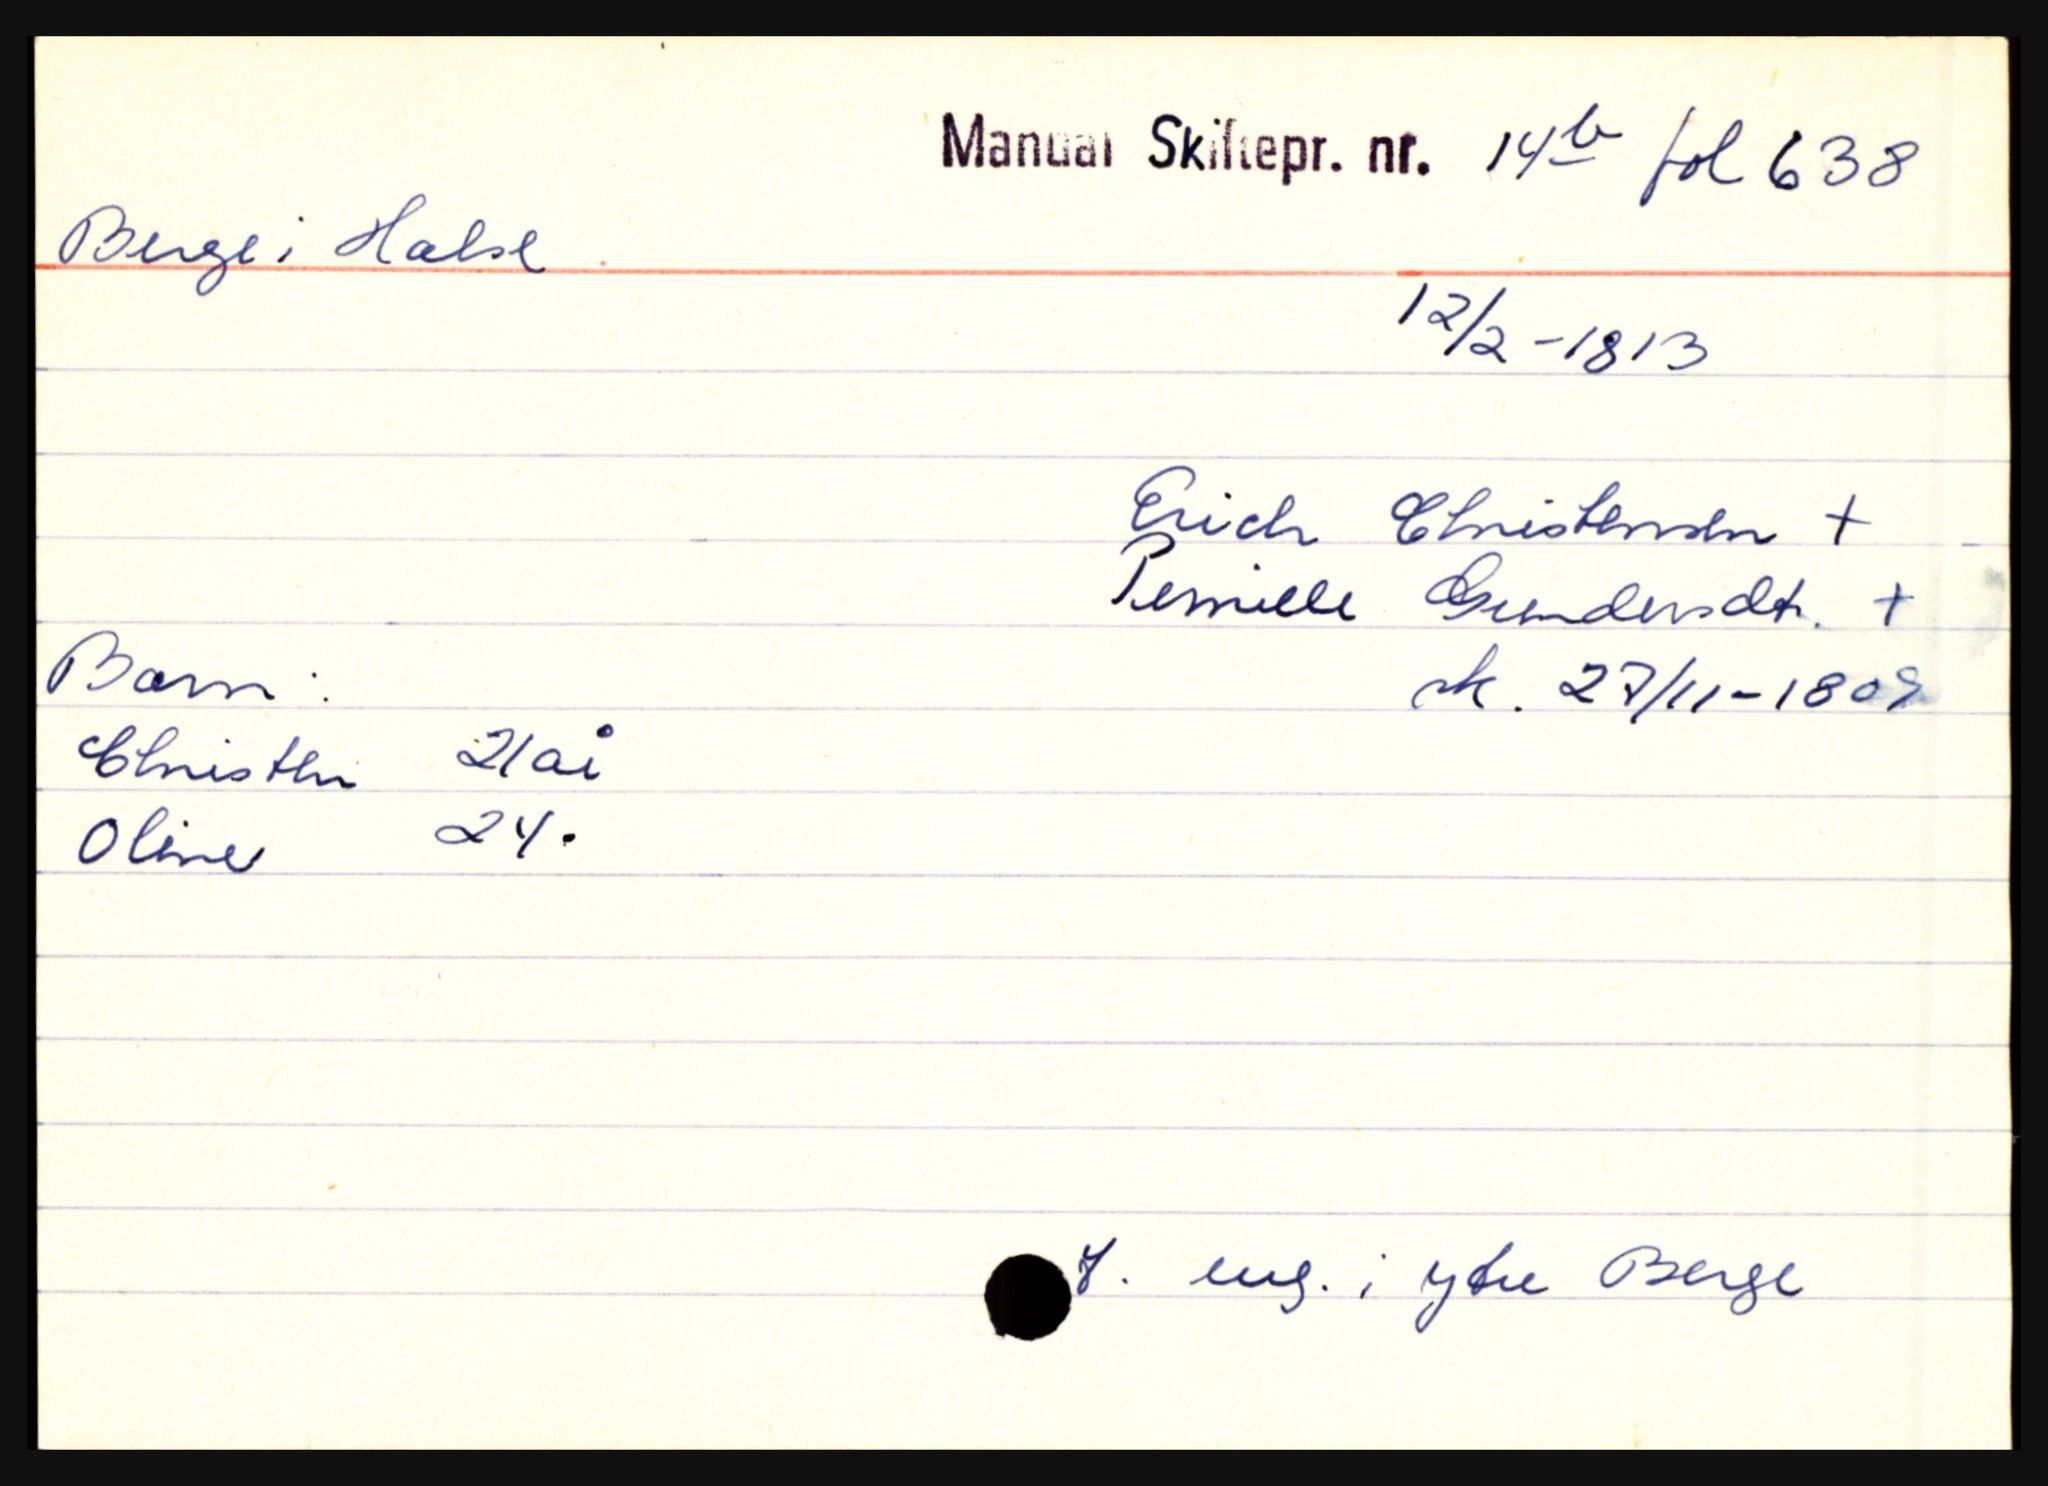 Manual Skiftepr. nr. 14b fol 638
Berge i Halse
12/2-1813
Erich Christensen +
Pernille Gundersdt. +
Barn: sk. 27/11-1809
Christen 21 år
Oline 24.
J. eug. i ytre Berge